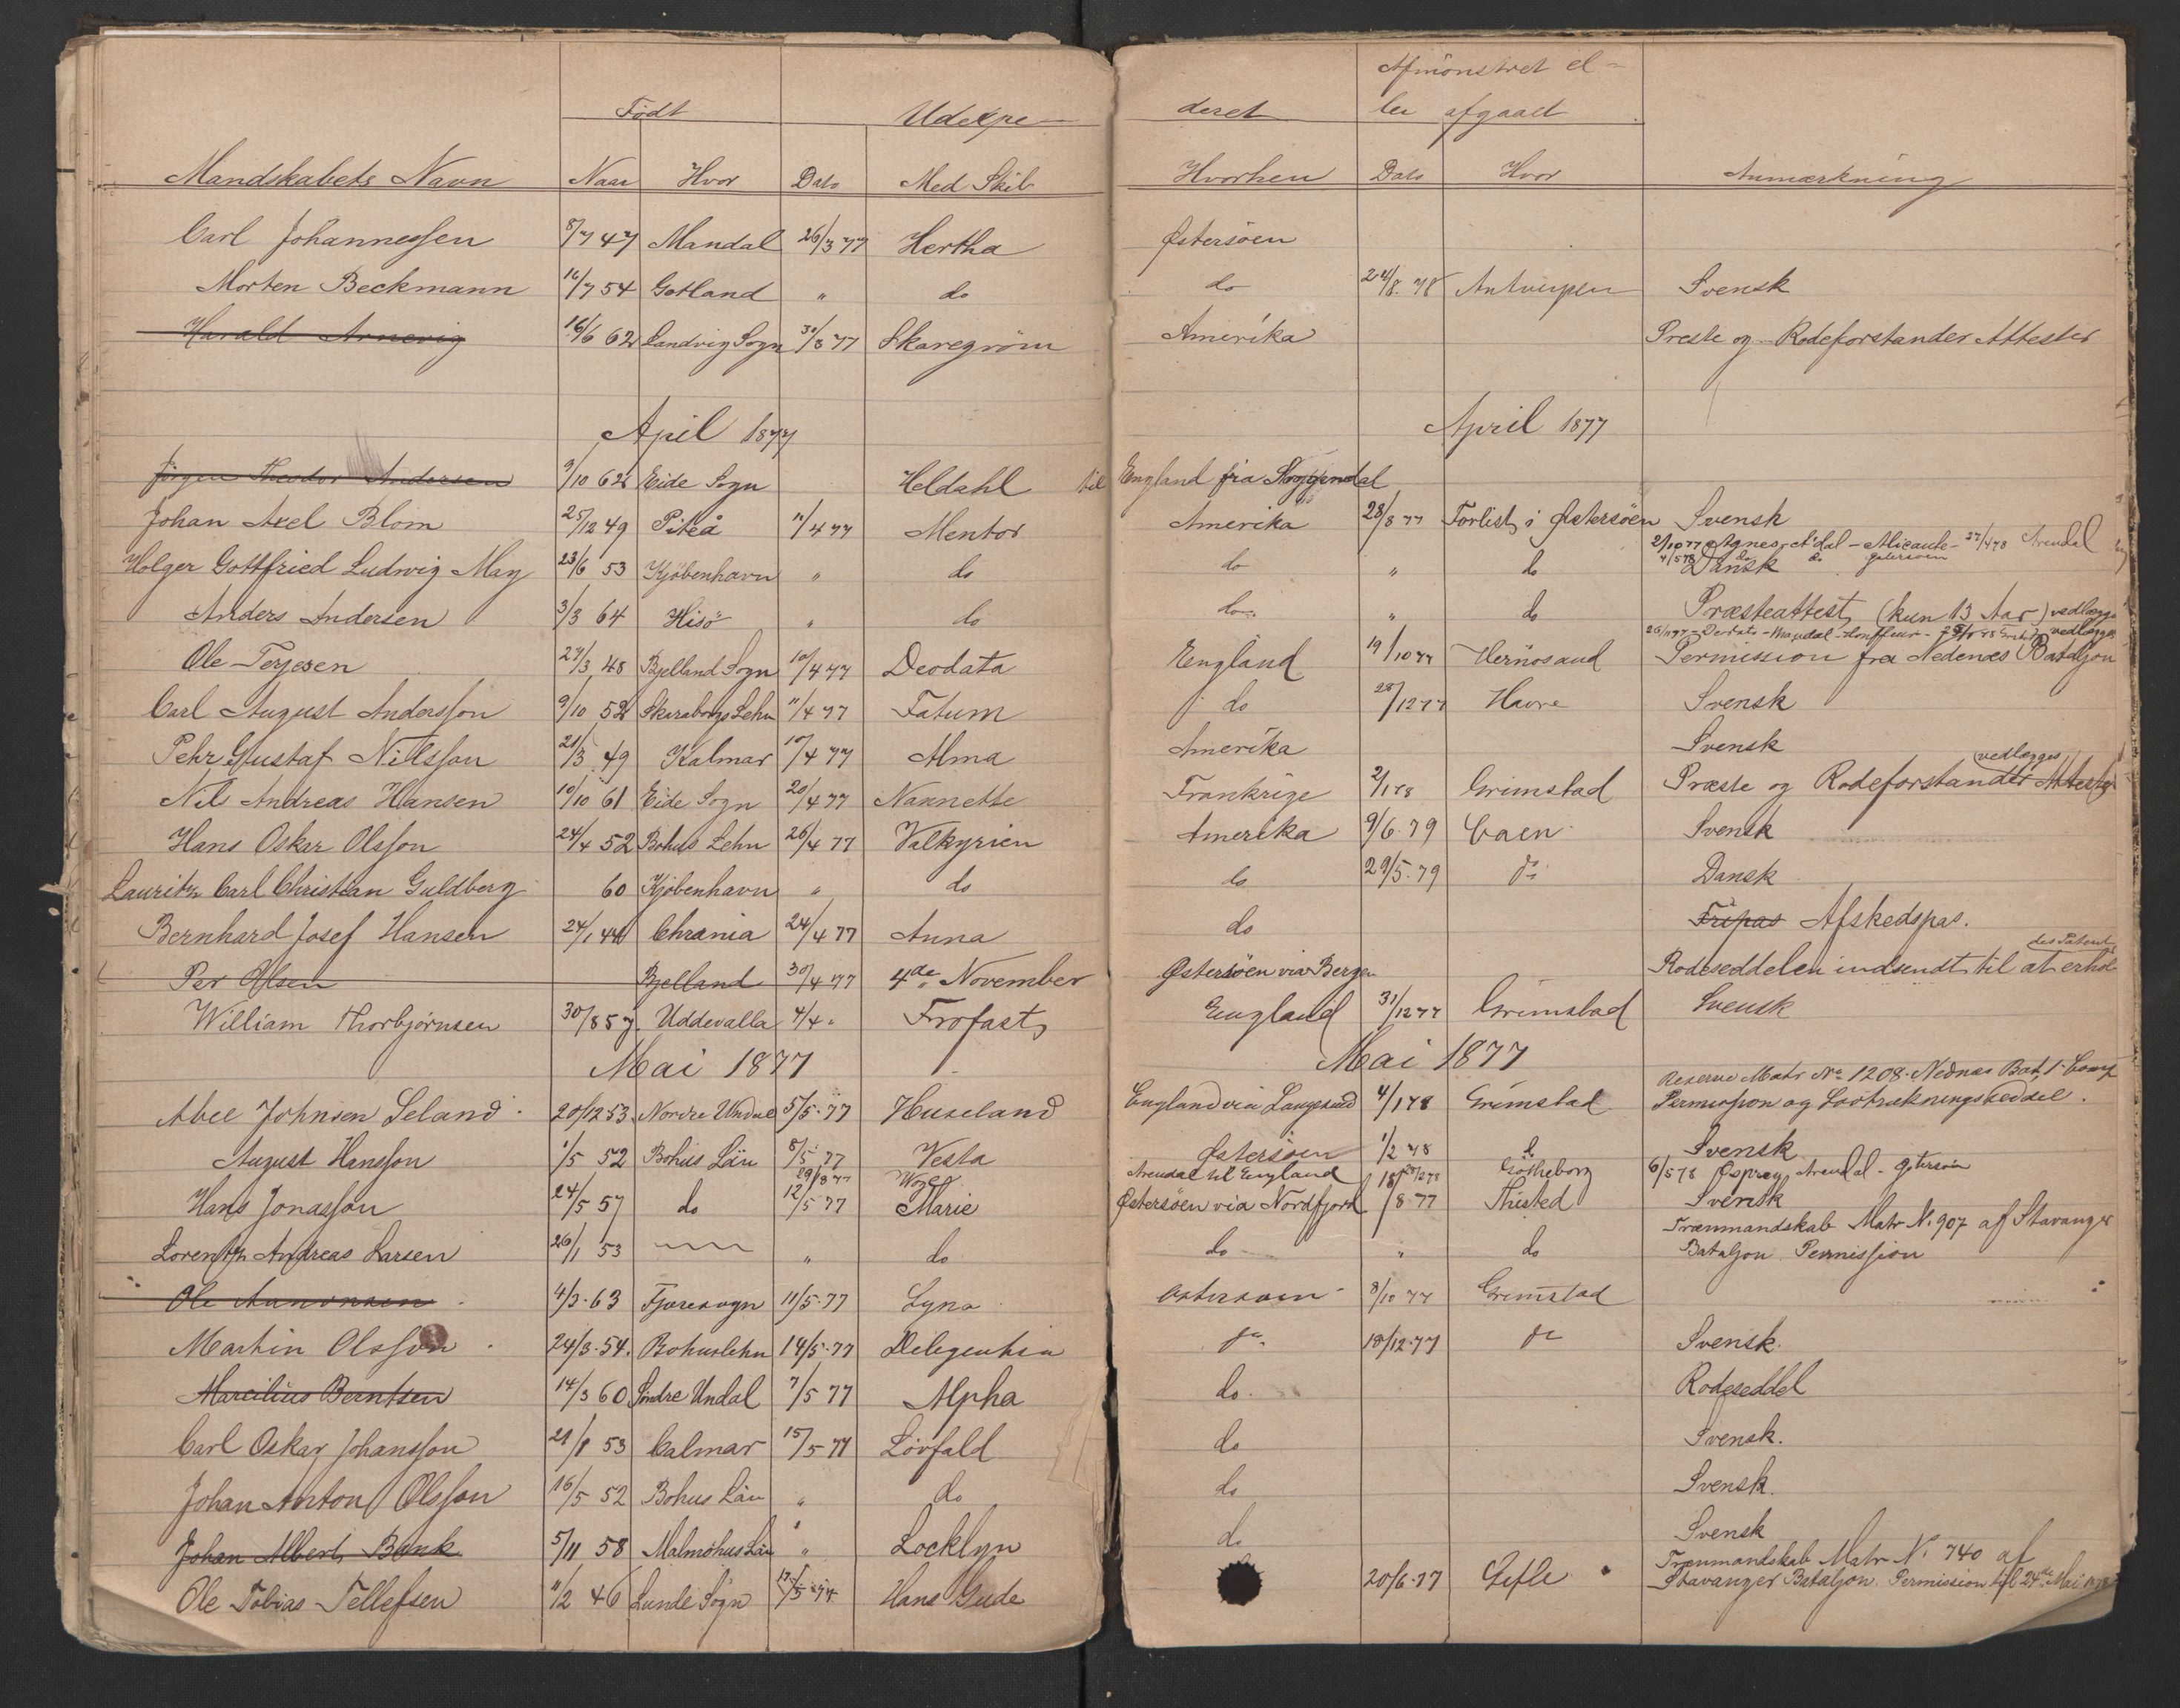 Født Udexpe- deret Afmønstret el-
ler afgaaet
Mandskabets Navn Naar Hvor Dato Med Skib Hvorhen Dato Hvor Anmærkning
Carl Johannessen 8/7 47 Mandal 26/3 77 Hertha Østersöen
Morten Beckmann 16/7 54 Gotland " do do 24/8. 78 Antwerpen Svensk
Harald Arnevig 16/6 62 Landvig Sogn 30/3 77 Skaregrøm Amerika Preste og Rodeforstander Attester
April 1877 April 1877
Jörgen Theodor Andersen 9/10 62 Eide Sogn Heldahl til England fra
Johan Axel Blom 25/12 49 Piteå 11/4 77 Mentor Amerika 28/8 77 Forlist i Østersöen Svensk
2/10 77 Agnes - A'dal - Alicante - 27/4 78 Arendal
Holger Gottfried Ludvig May 23/6 53 Kjöbenhavn " do do " do 4/5 78 Dansk do do Østersöen
Anders Andersen 3/3 64 Hisö " do do " do Præsteattest (kun 13 Aar) vedlægges
Ole Terjesen 27/3 48 Bjelland Sogn 10/4 77 Deodata England 19/10 77 Hernösand Permission fra Nedenæs Bataljon
Carl August Andersson 9/10 52 Skaraborgs Lehn 11/4 77 Fatum do 28/12 77 Havre Svensk
Pehr Gustaf Nilsson 21/3 49 Kalmar 10/4 77 Alma Amerika Svensk
vedlægges
Nil Andreas Hansen 10/10 61 Eide Sogn 20/4 77 Nannette Frankrige 2/1 78 Grimstad Præste og Rodeforstander Attester
Hans Oskar Olsson 24/4 52 Bohus Lehn 26/4 77 Valkyrien Amerika 9/6. 79 Caen Svensk
Lauritz Carl Christian Guldberg 60 Kjöbenhavn " do do 29/5. 79 do Dansk
Bernhard Josef Hansen 24/1 44 Chrania 24/4 77 Anna do Fripas Afskedspas.
Per Olsen Bjelland 30/4 77 4de November Østersöen via Bergen Rodeseddelen indsendt til at erhol
des Patent
William Thorbjörnsen 30/8 57. Uddevalla 4/4 " Trofast England 31/12 77 Grimstad Svensk
Mai 1877 Mai 1877
Reserve Matr No 1208. Nednæs Bat, 1 Comp
Abel Johnsen Leland 20/12 53 Nordre Undal 5/5. 77 Huseland England via Langesund 4/1 78 Grimstad Permission og Lodtrækningsseddel.
August Hansson 1/5 52 Bohus Län 8/5 77 Vesta Østersöen 1/2 78 do Svensk
29/8 77 Arendal til England Götheborg 6/5 78 Osprey, Arendal - Østersöen
Hans Jonasson 24/5 57 do 12/5 77 Marie Østersöen via Nordfjord 18/8 77 Thisted Svensk
Trænmandskab Matr N. 907 af Stavanger
Lorentz Andreas Larsen 26/1 53 " do do " do Bataljon Permission
Ole Aanonsen 4/3. 63 Fjæresogn 11/5. 77 Lyna Østersöen 8/10 77 Grimstad
Martin Olsson 24/3. 54. Bohuslehn 14/5. 77 Deligentia do 18/12. 77 do Svensk.
Marcilius Berntsen 14/3 60 Søndre Undal 7/5 77 Alpha do. Rodeseddel
Carl Oskar Johansson 21/8 53 Calmar 15/5 77 Lövfald do Svensk.
Johan Anton Olsson 16/5 52 Bohus Län " do do Svensk.
Johan Albert Bank 5/11 58 Malmöhus Län " Locklyn do Svensk
Trænmandskab Matr N. 740 af
Ole Tobias Tellefsen 11/2 46 Lunde Sogn 17/5 77 Hans Gude 20/6. 77 Gefle Stavanger Bataljon. Permission til 24de Mai 1878